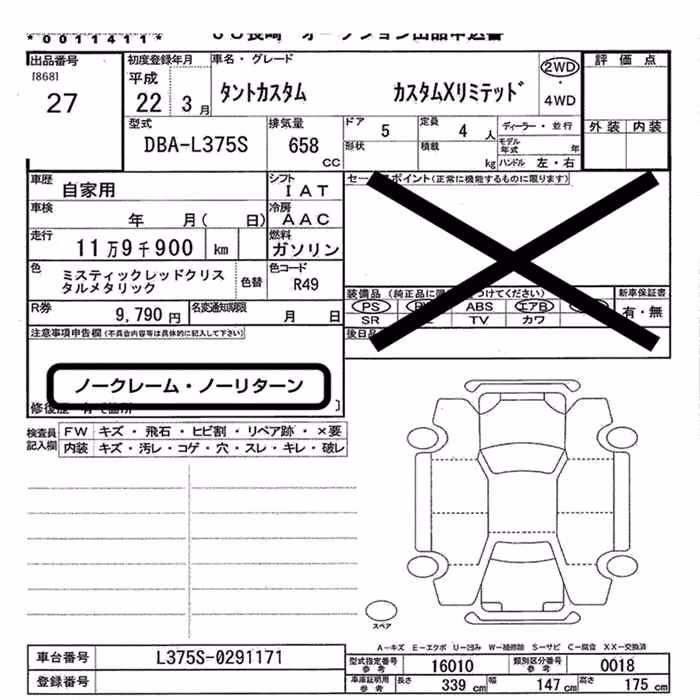 *0011411*
出品番号
[868]
27
初度登録年月
平成
22 3月
車名・グレード
タントカスタム カスタムXリミテッド
2WD
・
4WD
評価点
外装 内装
型式
DBA-L375S
排気量
658
CC
ドア 5
定員 4 人
形状
積載 kg
ディーラー・並行
モデル年式 年
ハンドル 左・右
車歴 自家用
シフト IAT
車検 年 月( 日)
冷房 AAC
走行 11万9千900 km
燃料 ガソリン
色 ミスティックレッドクリス
タルメタリック
色替
色コード R49
R券 9,790円
名変通知期限 月 日
ポイント(正常に機能するものに限ります)
装備品
PS ABS エアB
SR TV カワ
新車保証書
有・無
後日
注意事項申告欄(不具合内容等は具体的に記入して下さい)
ノークレーム・ノーリターン
検査員
記入欄
FW キズ・飛石・ヒビ割・リペア跡・×要
内装 キズ・汚レ・コゲ・穴・スレ・キレ・破レ
スペア
A-キズ E-エクボ U-凹み W-補修跡 S-サビ C-腐食 XX-交換済
車台番号 L375S-0291171
登録番号
型式指定番号
参考
16010
類別区分番号
参考
0018
車庫証明用
参考
長さ 339cm 幅 147cm 高さ 175cm